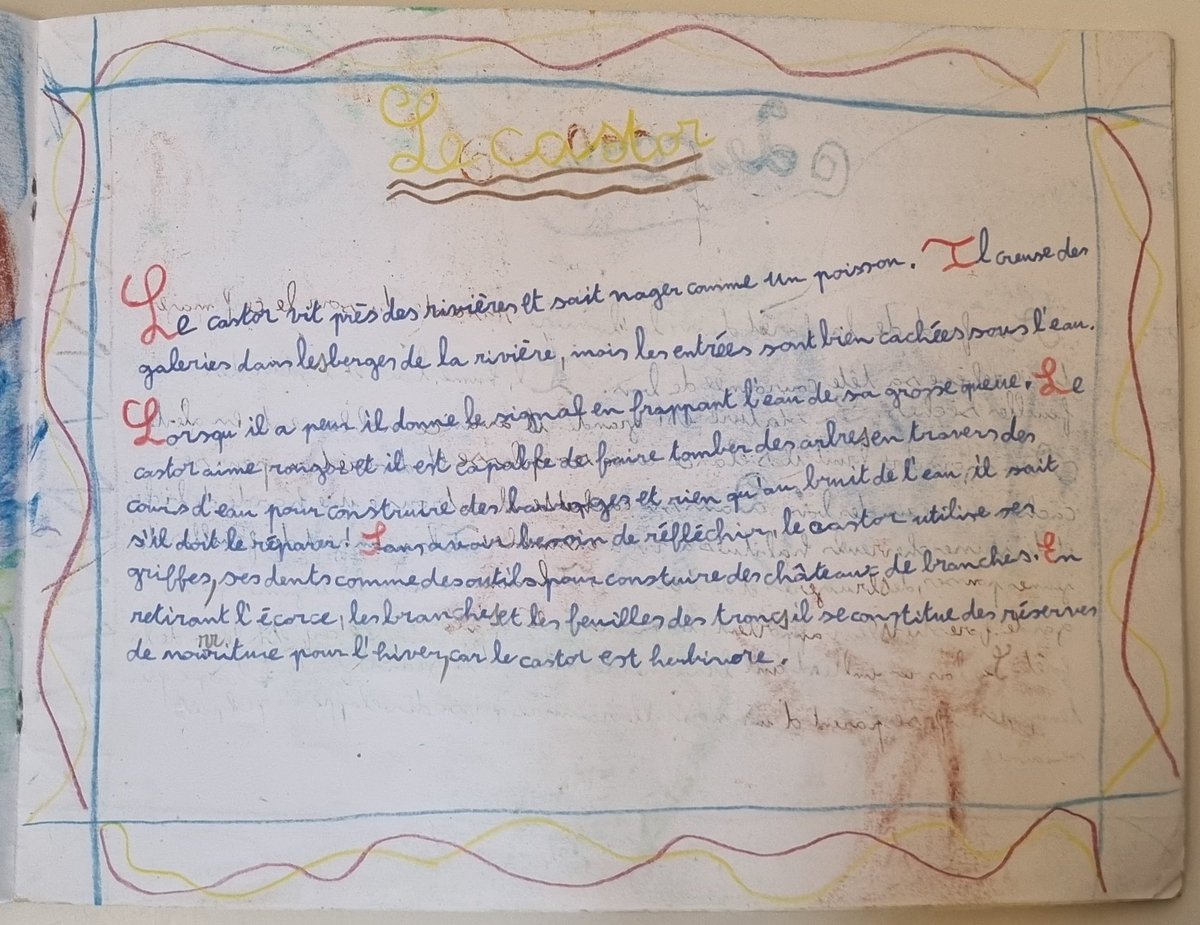 Le castor
Le castor vit près des rivières et sait nager comme un poisson. Il creuse des
galeries dans les berges de la rivière, mais les entrées sont bien cachées sous l'eau.
Lorsqu'il a peur il donne le signal en frappant l'eau de sa grosse queue. Le
castor aime ronger et il est capable de faire tomber des arbres en travers des
cours d'eau pour construire des barrages et rien qu'au bruit de l'eau, il sait
s'il doit le réparer! Sans avoir besoin de réfléchir, le castor utilise ses
griffes, ses dents comme des outils pour constuire des châteaux de branches. En
retirant l'écorce, les branches et les feuilles des troncs, il se constitue des réserves
de nourriture pour l'hiver, car le castor est herbivore.